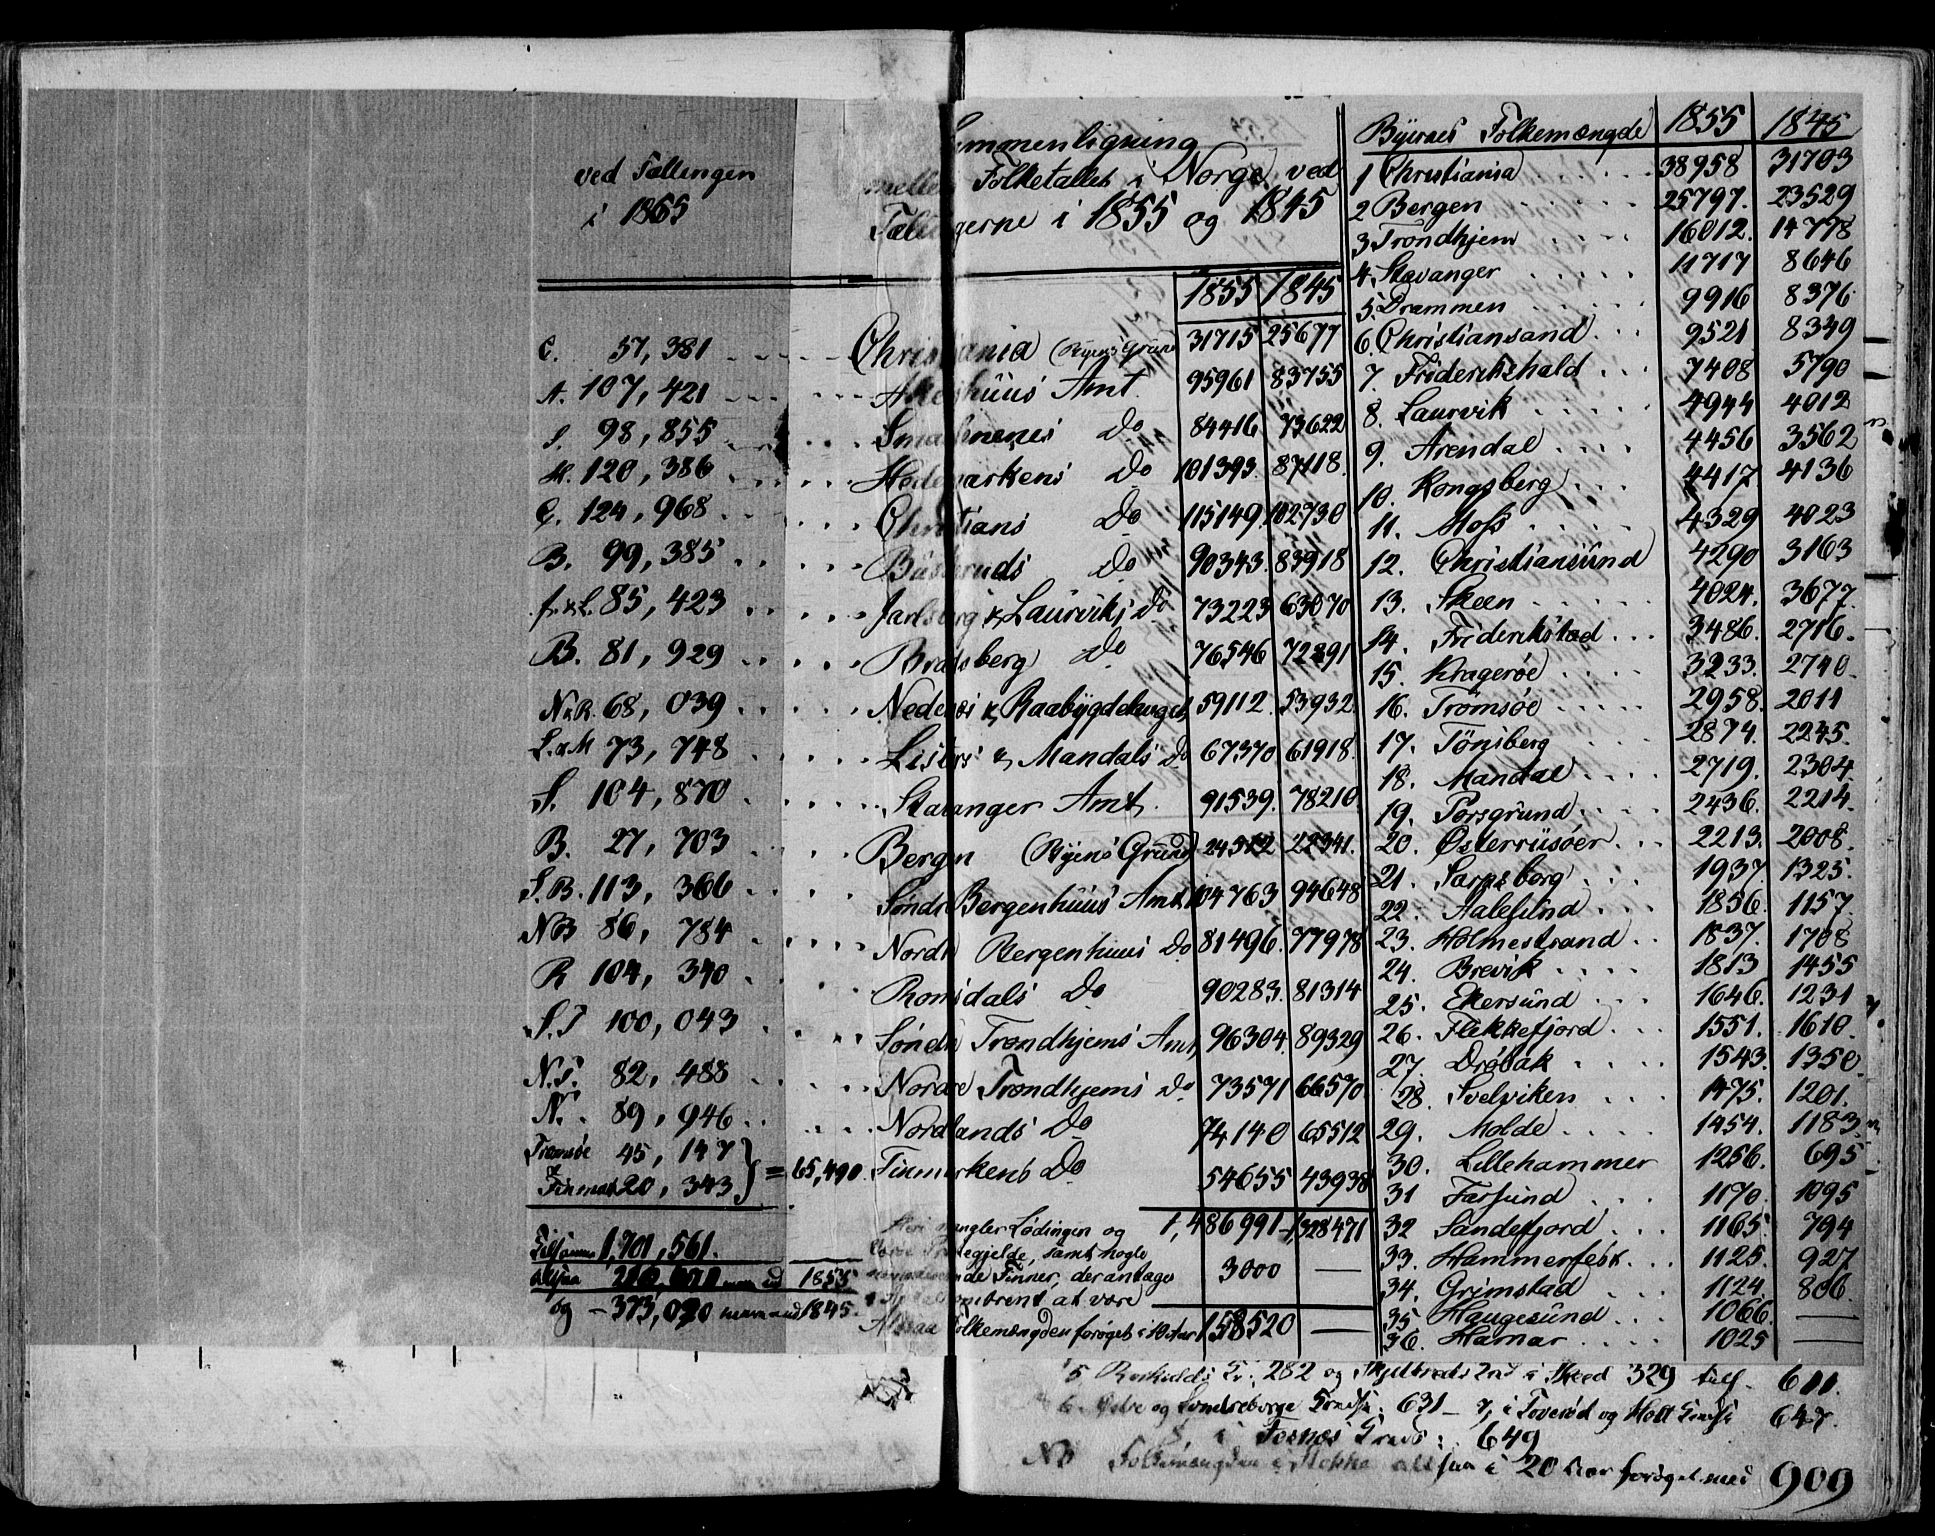 ved Tællingen
i 1865
Sammenligning
mellem Folketallet i Norge ved
Tællingerne i 1855 og 1845
1855 1845
C. 57,381 Christiania (Byens Grund 31715 25677
A. 107,421 Akershuus Amt. 95961 83755
S. 98,855 Smaalenenes Do 84416 73622
H. 120,386 Hedemarkens Do 101393. 87118.
C. 124,968 Christians Do 115149 102730
B. 99,385 Buskeruds Do 90343. 83918
J. & L. 85,423 Jarlsberg & Laurviks Do 73223 63070
B. 81,929 Bratsberg Do 76546 72891
N & R. 68,039 Nedenæs & Raabygdelaget 59112. 53932.
L. & M 73,748 Listers & Mandals Do 67370 61918.
S. 104,870 Stavanger Amt. 91539. 78210.
B. 27,703 Bergen (Byens Grund) 24512 22341.
S. B. 113,366 Søndre Bergenhuus Amt 104763 94648
N B 86,784 Nordre Bergenhuus Do 81496. 77978
R 104,340 Romsdals Do 90283. 81314
S. T 100,043 Søndre Trondhjems Amt 96304. 89329
N. T. 82,488 Nordre Trondhjems Do 73571 66570
N. 89,946 Nordlands Do 74140 65512
Tromsøe 45,147
& Finmark 20,343 } = 65,490 Finmarkens Do 54655 43938
1,486991 1328471
Heri mangler Lødingen og
Præstegjelde, samt nogle
Finner, der antages
at være 3000 —
Altsaa Folkemængden forøget i 10 Aar 158520 —
Tilsammen 1,701,561.
altsaa mere end 1855
og — 373,090 mere end 1845.
Byernes Folkemængde 1855 1845
1 Christiania 38958 31703
2 Bergen 25797. 23529
3 Trondhjem 16012. 14778
4. Stavanger 11717 8646
5. Drammen 9916 8376
6. Christiansand 9521 8349
7. Friderikshald 7408 5790
8. Laurvik 4944 4012
9. Arendal 4456 3562
10. Kongsberg 4417 4136
11. Moss 4329 4023
12. Christiansund 4290 3163
13. Skeen 4024. 3677.
14. Friderikstad 3486. 2716.
15. Kragerøe 3233. 2740.
16. Tromsøe 2958. 2011
17. Tönsberg 2874. 2245.
18. Mandal 2719. 2304.
19. Porsgrund 2436. 2214.
20. Østerriisøer 2213. 2008.
21. Sarpsborg 1937. 1325.
22. Aalesund 1856. 1157.
23. Holmestrand 1837. 1708
24. Brevik 1813 1455
25. Ekersund 1646. 1231
26. Flekkefjord 1551. 1610.
27. Drøbak 1543. 1350.
28. Svelviken 1475. 1201.
29. Molde 1454. 1183.
30. Lillehammer 1256. 695
31 Farsund 1170. 1095
32 Sandefjord 1165. 794
33. Hammerfest 1125. 927
34. Grimstad 1124. 806.
35 Haugesund 1066. —
36. Hamar 1025 —
5 282 og i Skeed 329 tils. 611.
6. og Søndreborge 631 — 7, i Toverød og 647.
i 649
NB Folkemængden i Stokke altsaa i 20 Aar forøget med 909